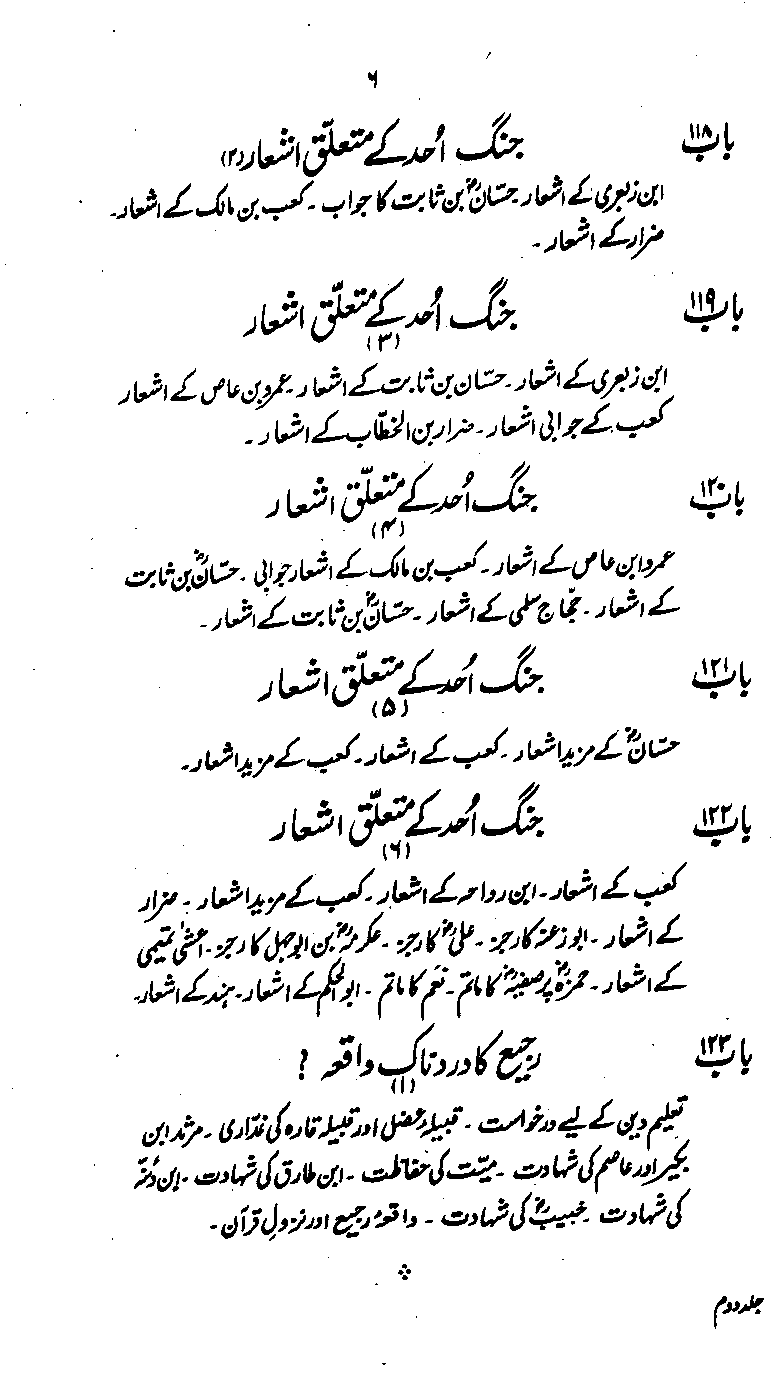 ۶
باب ۱۱۸ جنگ اُحد کے متعلّق اشعار (۲)
ابن زبعری کے اشعار۔ حسّانؓ بن ثابت کا جواب۔ کعب بن مالک کے اشعار۔
ضرار کے اشعار۔
باب ۱۱۹ جنگ اُحد کے متعلّق اشعار
(۳)
ابن زبعری کے اشعار۔ حسّان بن ثابت کے اشعار۔ عمرو بن عاص کے اشعار
کعب کے جوابی اشعار۔ ضرار بن الخطّاب کے اشعار۔
باب ۱۲۰ جنگ اُحد کے متعلّق اشعار
(۴)
عمرو ابن عاص کے اشعار۔ کعب بن مالک کے اشعار جوابی۔ حسّانؓ بن ثابت
کے اشعار۔ حجّاج سلمی کے اشعار۔ حسّانؓ بن ثابت کے اشعار۔
باب ۱۲۱ جنگ اُحد کے متعلّق اشعار
(۵)
حسّانؓ کے مزید اشعار۔ کعب کے اشعار۔ کعب کے مزید اشعار۔
باب ۱۲۲ جنگ اُحد کے متعلّق اشعار
(۶)
کعب کے اشعار۔ ابن رواحہ کے اشعار۔ کعب کے مزید اشعار۔ ضرار
کے اشعار۔ ابو زعنہ کا رجز۔ علیؓ کا رجز۔ عکرمہؓ بن ابوجہل کا رجز۔ اعشیٰ تمیمی
کے اشعار۔ حمزہؓ پر صفیہؓ کا ماتم۔ نعم کا ماتم۔ ابوالحکم کے اشعار۔ ہند کے اشعار۔
باب ۱۲۳ رجیع کا دردناک واقعہ ؟
(۱)
تعلیم دین کے لیے درخواست۔ قبیلۂ عضل اور قبیلہ قارہ کی غدّاری۔ مرثد ابن
بکیر اور عاصم کی شہادت۔ میّت کی حفاظت۔ ابن طارق کی شہادت۔ ابن دثنہ
کی شہادت۔ خبیبؓ کی شہادت۔ واقعۂ رجیع اور نزولِ قرآن۔
جلد دوم